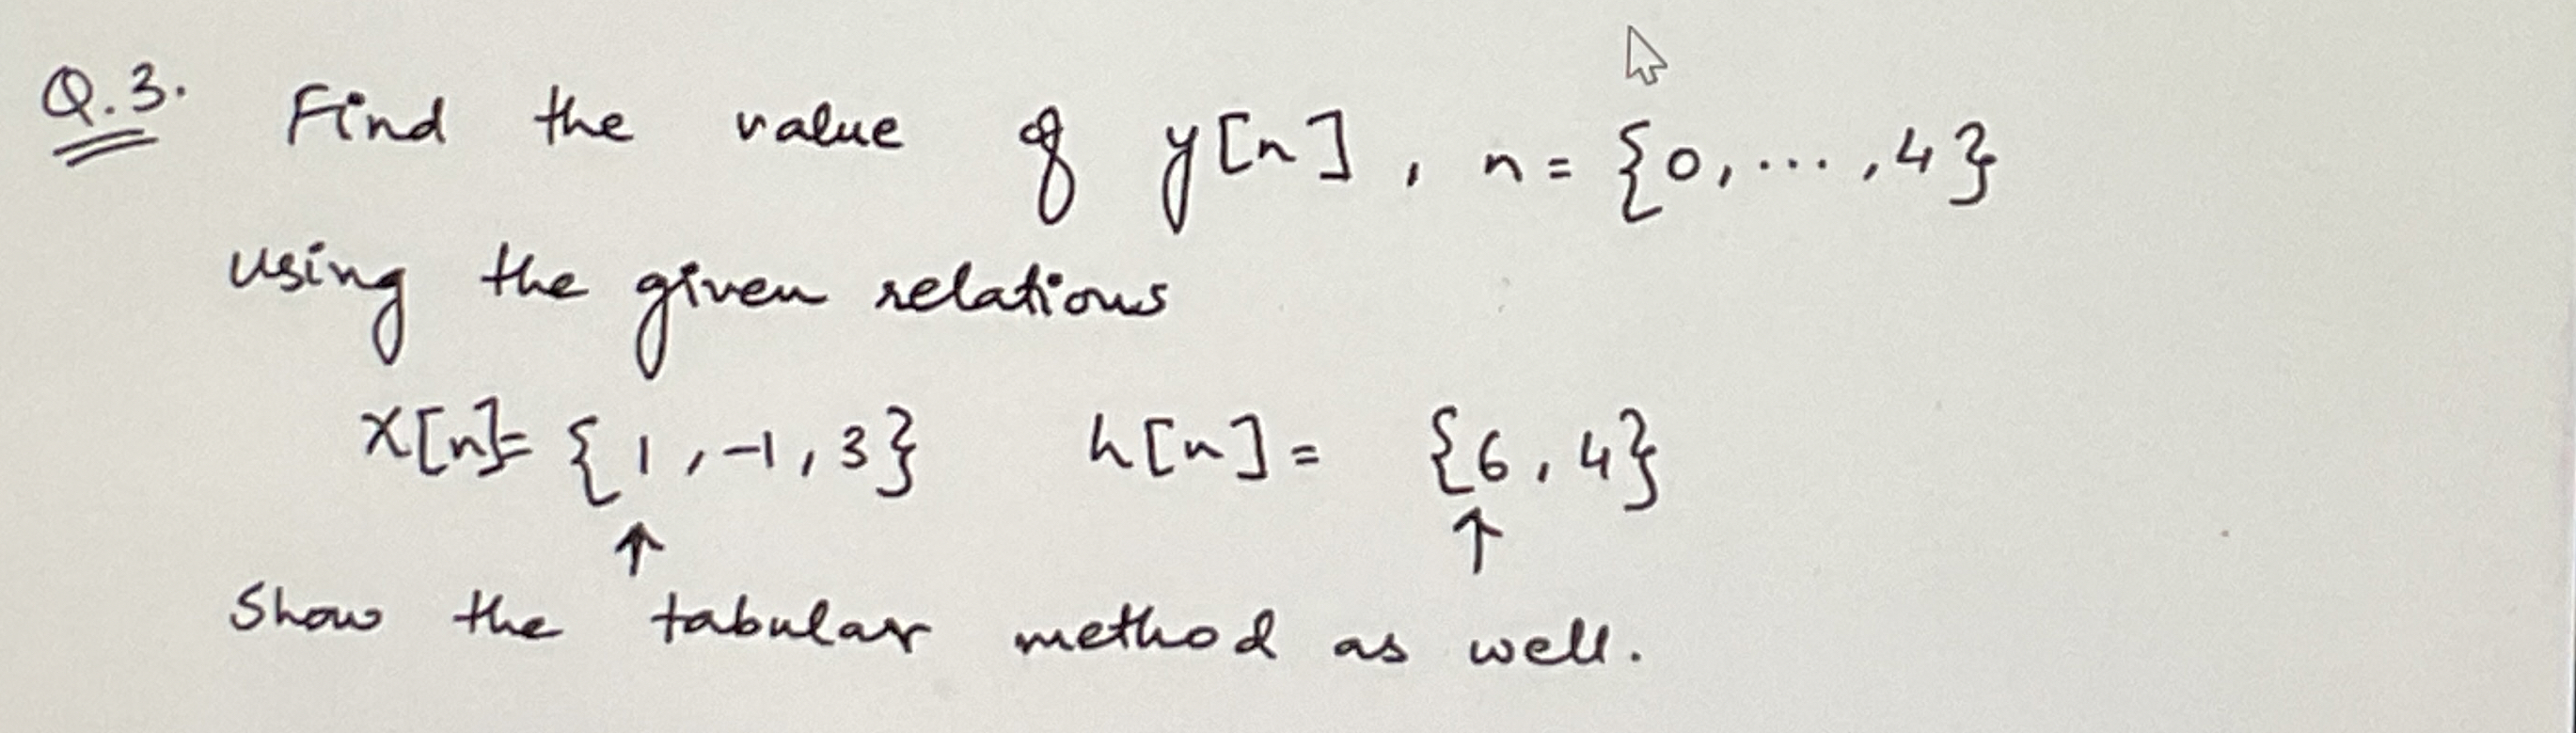 Q.3. Find the value of y[n], n = {0, ... , 4}
using the given relations
x[n]= {1, -1, 3} h[n] = {6, 4}
↑ ↑
Show the tabular method as well.